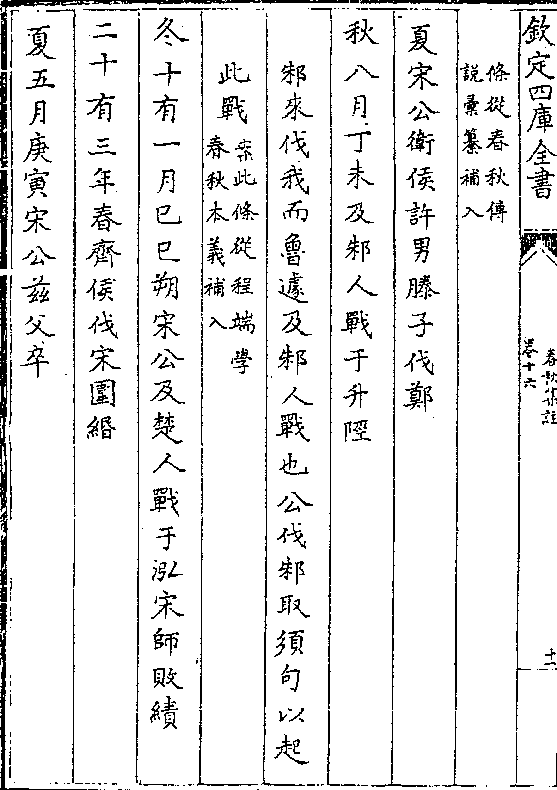 欽定四庫全書
春秋集註
卷十六
十一
條從春秋傳
說彙纂補入
夏宋公衛侯許男滕子伐鄭
秋八月丁未及邾人戰于升陘
邾來伐我而魯遽及邾人戰也公伐邾取須句以起
此戰
案此條從程端學
春秋本義補入
冬十有一月己巳朔宋公及楚人戰于泓宋師敗績
二十有三年春齊侯伐宋圍緡
夏五月庚寅宋公茲父卒